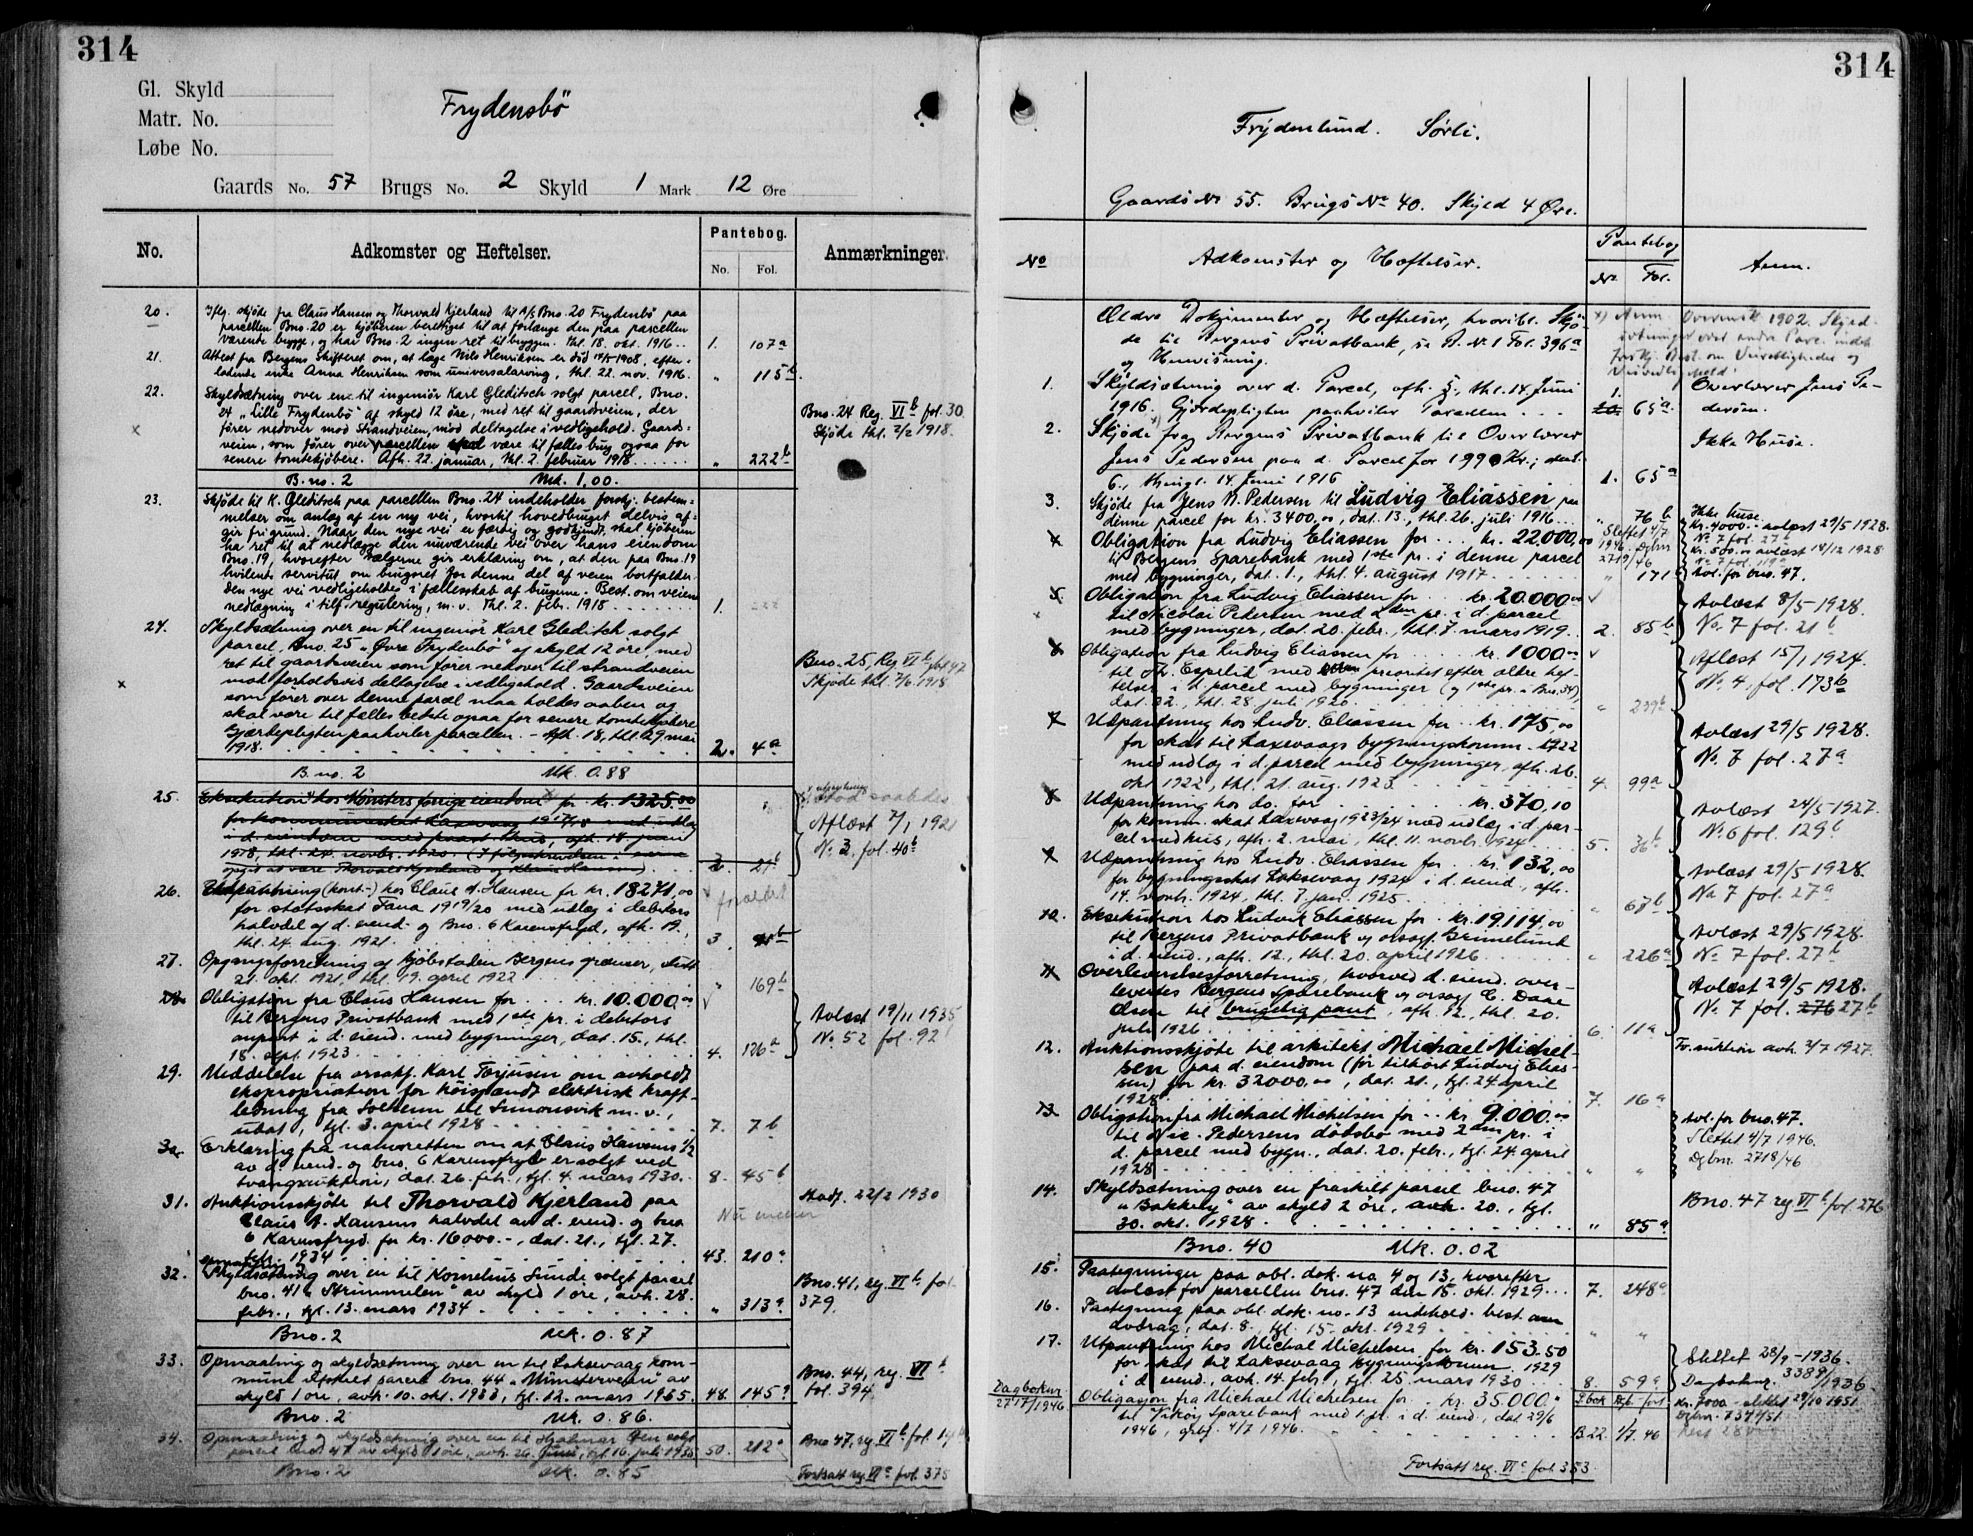 314
Gl. Skyld
Matr. No.
Løbe No.
Frydensbö
Gaards No. 57 Brugs No. 2 Skyld 1 Mark 12 Øre
No. Adkomster og Heftelser. Pantebog. No. Fol. Anmærkninger.
20. Iflg. skjöde fra Claus Hansen og Thorvald Kjerland til A/S Bno. 20 Frydensbö paa
parcellen Bno. 20 er kjöberen berettiget til at forlænge den paa parcellen
værende brygge, og har Bno. 2 ingen ret til bryggen. Thl. 18. okt. 1916. 1. 107a
21. Attest fra Bergens Skifteret om, at Lage Nils Henriksen er död 1908, efter-
ladende enke Anna Henriksen som universalarving, thl. 22. nov. 1916. " 115b
22. Skyldsætning over en til ingeniör Karl Gleditsch solgt parcel, Bno.
24 „Lille Frydenbö" af skyld 12 öre, med ret til gaardsveien, der
förer nedover mod Strandveien, mod deltagelse i vedligehold. Gaards-
veien, som förer over parcellen skal være til fælles brug ogsaa for
senere tomtekjöbere. Afh. 22. januar, thl. 2. februar 1918 " 222b
Bno. 24 Reg. VIb fol. 30.
Skjöde thl. 2/2 1918.
B. no. 2 Mk. 1.00.
23. Skjöde til K. Gleditsch paa parcellen Bno. 24 indeholder forskj. bestem-
melser om anlæg af en ny vei, hvortil hovedbruget delvis af-
gir fri grund. Naar den nye vei er færdig og godkjendt, skal kjöberen
ha ret til at nedlægge den nuværende vei over hans eiendom
Bno. 19, hvorefter sælgerne gir erklæring om, at den paa Bno. 19
hvilende servitut om brugsret for denne del af veien bortfalder.
Den nye vei vedligeholdes i fællesskab af brugerne. Best. om veiens
nedlægning i tilf. regulering, m. v. Thl. 2. febr. 1918 1. 222
24. Skyldsætning over en til ingeniör Karl Gleditsch solgt
parcel, Bno. 25 „Övre Frydenbö" af skyld 12 öre, med
ret til gaardsveien som förer nedover til strandveien
mod forholdsvis deltagelse i vedligehold. Gaardsveien
som förer over denne parcel maa holdes aaben og
skal være til fælles bedste ogsaa for senere tomtekjöbere.
Gjærdepligten paahviler parcellen. - Afh. 18., thl. 29 mai
1918. 2. 4a
Bno. 25, Reg VIb, fol 47
Skjöde thl. 7/6. 1918
B. no. 2 Mk. 0.88
25. Eksekution hos Mönsters forrige eiendom for kr. 1325.00
for kommuneskat Laxevaag 1917/18 med udlæg
i d. eiendom med paast. hus, afh. 14 juni
1918, thl. 24 novbr. 1920. 2. 21b
Aflæst 7/1 1921
No 3. fol. 40b
26. Udpantning (kont.-) hos Claus A. Hansen for kr. 18271,00
for statsskat Fana 1919/20 med udlæg i debitors
halvdel af d. eiend. og Bno. 6 Karensfryd, afh. 19.,
thl. 24. aug. 1921. 3. 91b
forældet
27. Opgangsforretning af kjöbstaden Bergens grænser, sluttet
21. okt. 1921, thl. 19. april 1922 " 169b
28. Obligation fra Claus Hansen for kr. 10.000.00
til Bergens Privatbank med 1ste pr. i debitors
anpart i d. eiend. med bygninger, dat. 15., thl.
18. sept. 1923. 4. 126a
Avlæst 19/11 1935
No. 52 fol. 92
29. Meddelelse fra orsakf. Karl Torjusen om avholdt
ekspropriation for höispændt elektrisk kraft-
ledning fra Solheim til Simonsvik m. v.,
udat, tgl. 3. april 1928 7. 7b
30. Erklæring fra namsretten om at Claus Hansens 1/2
av d. eiend. og bno. 6 Karensfryd er solgt ved
tvangsauktion, dat. 26. febr., tgl. 4. mars 1930. 8. 45b
31. Auktionsskjöte til Thorvald Kjerland paa
Claus A. Hansens halvdel av d. eiend. og bno
6 Karensfryd. for kr. 16000.-, dat. 21., tgl. 27.
febr. 1934 43. 210a
Stadf. 22/2 1930
32. Opmaaling og Skyldsætning over en til Kornelius Lunde solgt parcel
bno. 41 „Strimmelen" av skyld 1 öre, avh. 28.
febr., tgl. 13. mars 1934 " 313a
Bno. 41, reg. VIb, fol.
379.
Bno. 2 Mk. 0.87
33. Opmaaling og skyldsætning over en til Laksevaag kom-
mune utskilt parcel bno. 44 „Münsterveien" av
skyld 1 öre, avh. 10. okt. 1933, tgl. 12. mars 1935. 48. 145a
Bno. 44, reg. VIb
fol. 394.
Bno. 2 Mk. 0.86.
34. Opmaaling og skyldsætning over en til Hjalmar solgt
parcel bno. 47 av skyld 1 öre, avh. 26. juni, tgl. 16. juli 1935 50. 212a
Bno 47, reg VIb fol.
Bno. 2 Mk. 0.85
Fortsatt reg VIc fol 375
314
Frydenlund. Sörli.
Gaards No 55. Brugs No 40. Skyld 4 Øre.
No Adkomster og Hæftelser. Pantebog No. Fol. Anm.
Ældre Dokumenter og Hæftelser, hvoribl. Skjö-
de til Bergens Privatbank, se R. No 1 Fol. 396a
og Henvisning.
1. Skyldsætning over d. Parcel, afh. thl. 14. Juni
1916. Gjærdepligten paahviler Parcellen 1. 65a
Overlærer Jens Pe-
dersen.
2. Skjöde fra Bergens Privatbank til Overlærer
Jens Pedersen paa d. Parcel for 1990 Kr.; dat.
6., thingl. 14. Juni 1916 1. 65a
Ikke Huse.
3. Skjöde fra Jens N. Pedersen til Ludvig Eliassen paa
denne parcel for kr. 3400,00, dat. 13., thl. 26. juli 1916 " 76b
Ikke huse.
4. Obligation fra Ludvig Eliassen for kr. 22000,00
til Bergens Sparebank med 1ste pr. i denne parcel
med bygninger, dat. 1., thl. 4. august 1917. " 171
Slettet 4/7
1946. Dgbnr
2719/46
kr. 4000.- avlæst 29/5 1928.
No. 7 fol. 27b
kr. 500.00 avlæst 14/12 1928
No. 7 fol. 119a
Avl. for bno. 47.
5. Obligation fra Ludvig Eliassen for kr. 20.000.00
til Nicolai Petersen med 2den pr. i d. parcel
med bygninger, dat. 20. febr., thl. 7. mars 1919. 2. 85b
Avlæst 8/5-1928.
No. 7 fol. 21b
6. Obligation fra Ludvig Eliassen for kr. 1000.00
til Th. Espelid med prioritet efter ældre hef-
telser i d. parcel med bygninger (og 1ste pr. i Bno. 34),
dat. 22., thl. 28. juli 1920. " 239b
Aflæst 15/1 1924.
No. 4, fol. 173b
7. Udpantning hos Ludv. Eliassen for kr. 175,00
for skat til Laxevaags bygningskomm. 1922
med udlæg i d. parcel med bygninger, afh. 26.
okt. 1922, thl. 21. aug. 1923. 4. 99a
Avlæst 29/5 1928.
No. 7 fol. 27a
8. Udpantning hos do. for kr. 370,10
for komm. skat Laxevaag 1923/24 med udlæg i d. par-
cel med hus, afh. 2. mai, thl. 11. novbr. 1924 5. 36b
Avlæst 24/5-1927.
No. 6 fol. 129b
9. Udpantning hos Ludv. Eliassen for kr. 132,00
for bygningsskat Laksevaag 1924 i d. eiend., afh.
14. novbr. 1924, thl. 7 jan. 1925. " 67b
Avlæst 29/5 1928.
No 7 fol. 27a
10. Eksekution hos Ludvik Eliassen for kr. 19114,00
til Bergens Privatbank og orsagf. Grinnelund
i d. eiend., afh. 12., thl. 20. april 1926 " 226a
Avlæst 29/5 1928.
No. 7 fol. 27b
11. Overleverelsesforretning, hvorved d. eiend. over-
levertes Bergens Sparebank og orsagf. C. Daae
Olsen til brugelig pant, afh. 12., thl. 20.
juli 1926 6. 11a
Avlæst 29/5 1928.
No. 7 fol. 276 27b
12. Auktionsskjöte til arkitekt Michael Michel-
sen paa d. eiendom (för tilhört Ludvig Elias-
sen) for kr. 32000.00, dat. 21., tgl. 24 april
1928. 7. 16a
Tv. auktion avh. 2/7 1927.
13. Obligation fra Michael Michelsen for kr. 9.000.00
til Nic. Pedersens dödsbo med 2den pr. i
d. parcel med bygn., dat. 20. febr., tgl. 24. april
1928 " "
Avl. for bno. 47.
Slettet 4/7 1946.
Dgbnr. 2718/46
14. Skyldsætning over en fraskilt parcel bno. 47
„Bakkely" av skyld 2 öre, avh. 20., tgl.
30. okt. 1928 " 85a
Bno. 47 reg VIb fol. 276
Bno. 40 Mk. 0.02
15. Paategninger paa obl. dok. no. 4 og 13, hvorefter
avlæst for parcellen bno. 47 den 15. okt. 1929 7. 248a
16. Paategning paa obl. dok. no. 13 indehold. best. om
avdrag, dat. 8., tgl. 15. okt. 1929 " "
17. Utpantning hos Michal Michelsen for kr. 153.50
for skat til Laksevaag bygningskomm. 1929
i d. eiend., avh. 14. febr., tgl. 25. mars 1930 8. 59a
Slettet 28/9-1936.
Dagboknr. 3383/1936.
Dagboknr.
2717/1946
Obligasjon fra Michael Michelsen for kr. 35.000.-
til Viköy Sparebank med 1. pr. i d. eiend., dat 29/6
1946, 4/7 1946. B22. 4/7. 46
kr. 7000 - slettet 29/10 1951.
Dgbnr. 7344/51
Fortsatt reg. VIc fol. 353